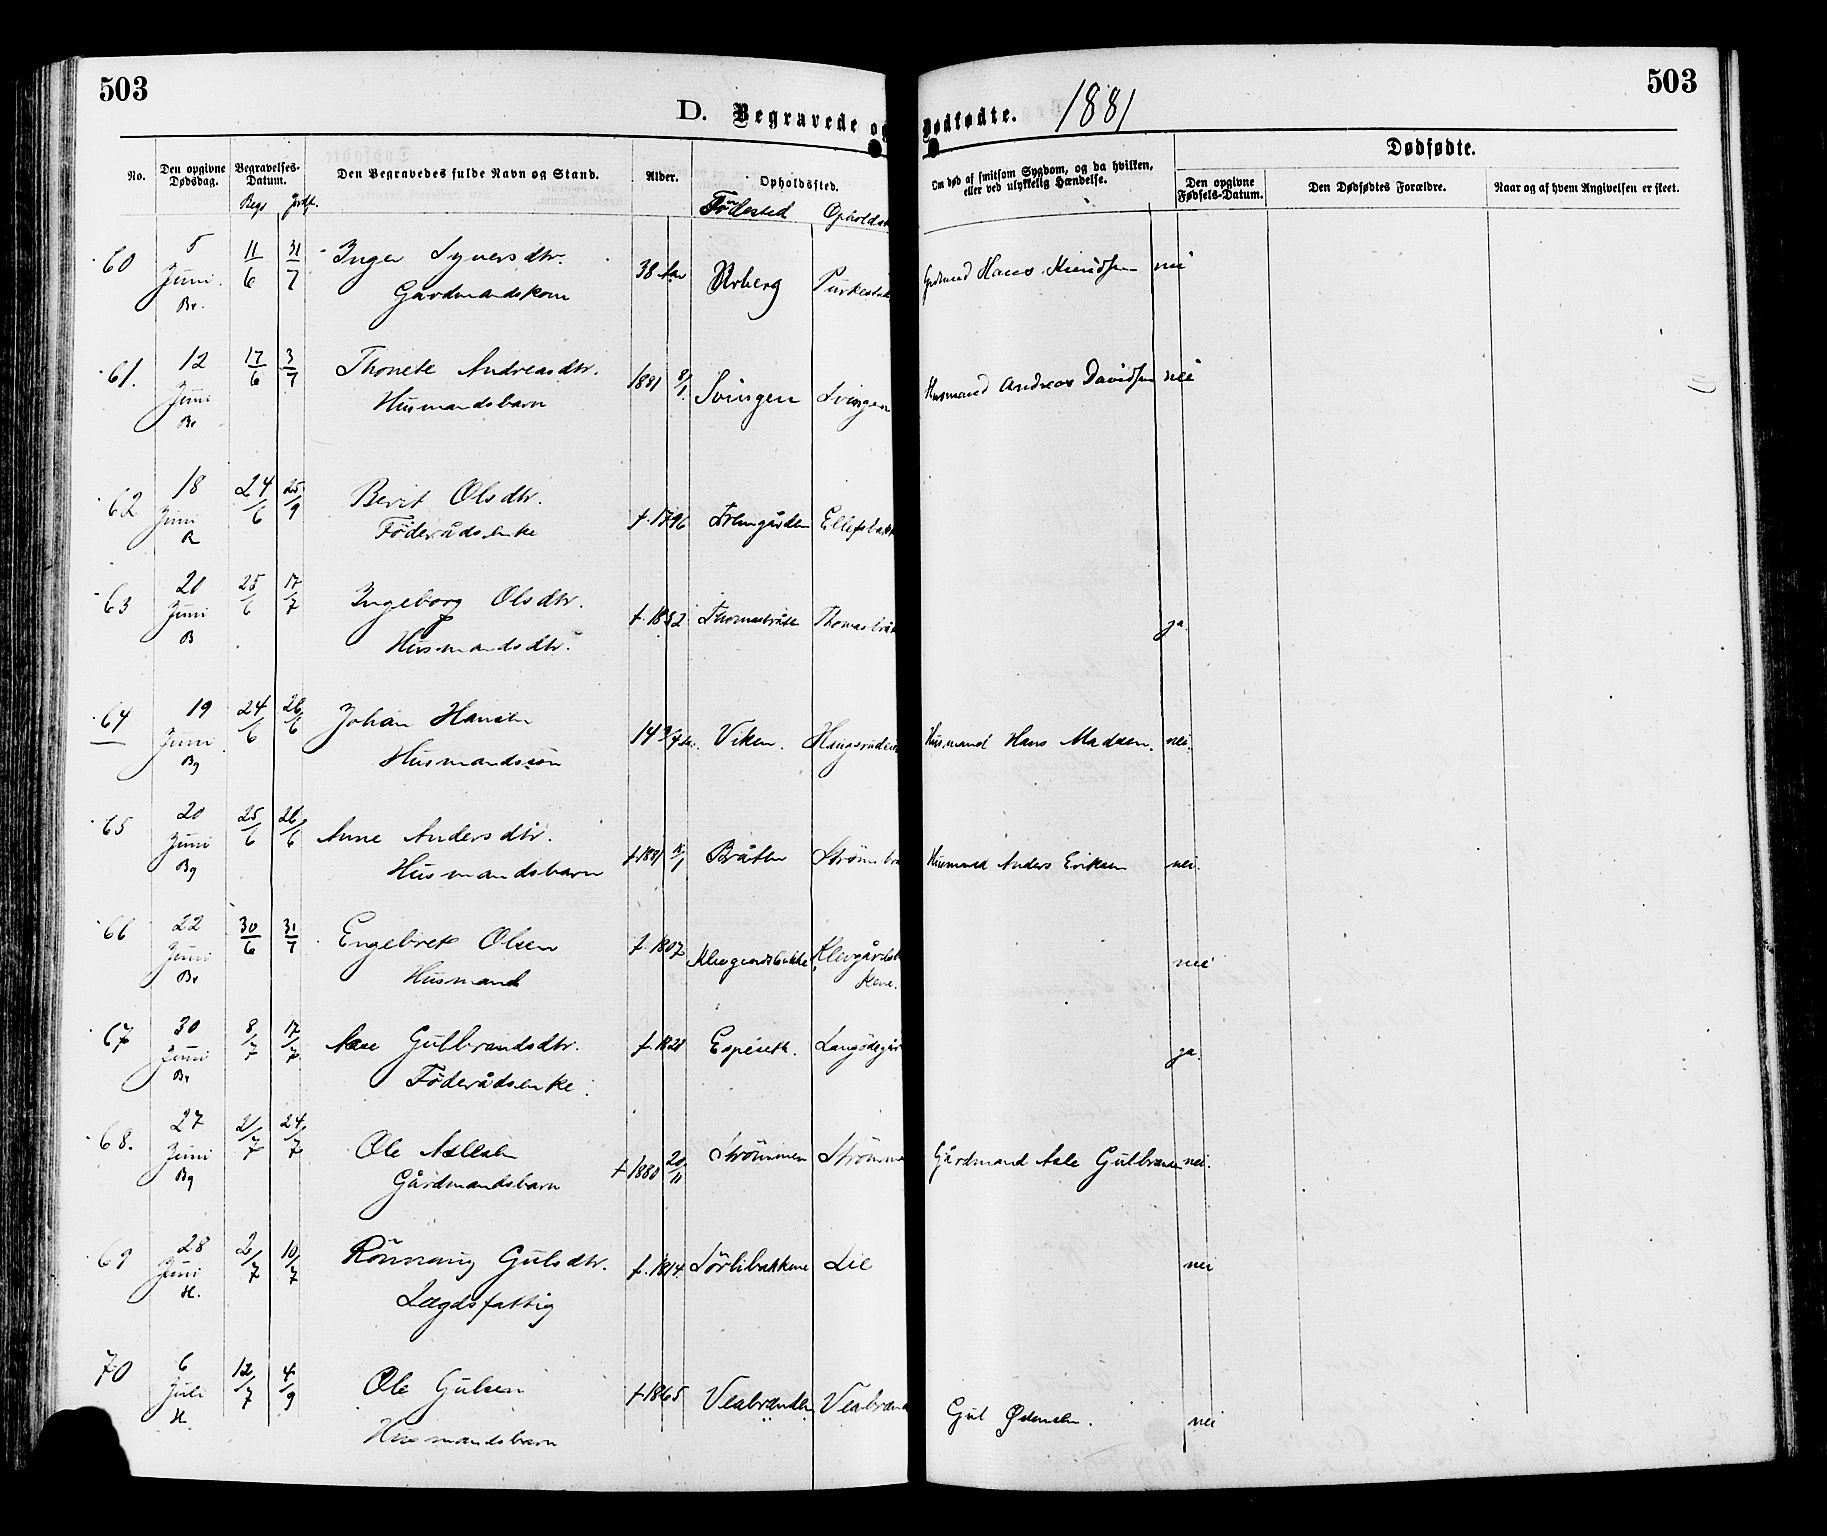 503
503
D. Begravede og Dødfødte. 1881
No.
Den opgivne Dødsdag.
Begravelses-Datum.
Begr Jordf.
Den Begravedes fulde Navn og Stand.
Alder.
Opholdssted.
Födested
Om død af smitsom Sygdom, og da hvilken, eller ved ulykkelig Hændelse.
Dødfødte.
Den opgivne Fødsels-Datum.
Den Dødfødtes Forældre.
Naar og af hvem Angivelsen er skeet.
60 5 Juni Br. 11/6 31/7 Inger Syversdtr. 38 Aar Urberg Hans Knudsen nei
Gaardmandskone
61. 12 Juni Br 17/6 3/7 Thonete Andreasdtr. 1881 8/1 Svingen Svingen Husmand Andreas Davidsen nei
Husmandsbarn
62 18 Juni 24/6 25/9 Berit Olsdtr. f. 1796
Föderådsenke
63 20 Juni B 25/6 17/7 Ingeborg Olsdtr. f. 1832 Thomasbråte ja.
Husmandsdtr.
64 19 Juni Bg 24/6 26/6 Johan Hansen 14 3/4 Viken. Husmand Hans Madsen. nei.
Husmandssön
65 20 Juni Bg 25/6 26/6 Anne Andersdtr. f. 1881 Bråten Husmand Anders Eriksen nei.
Husmandsbarn
66 22 Juni Br 30/6 31/7 Engebret Olsen f. 1807 nei
Husmand
67 30 Juni Br 8/7 17/7 Aase Gulbrandsdtr. Espeseth. ja.
Föderådsenke.
68. 27 Juni Bg 2/7 24/7 Ole f. 1880 20/11 Strömmen Strömme Gårdmand Asle Gulbrandsen nei.
Gårdmandsbarn
69 28 Juni H. 2/7 10/7 Rönnaug Gulsdtr. f. 1814. Sørlibakkene Lie nei
Lægdsfattig
70 6 Juli H. 12/7 4/9 Ole Gulsen f. 1865 Veabraaden Gul nei
Husmandsbarn